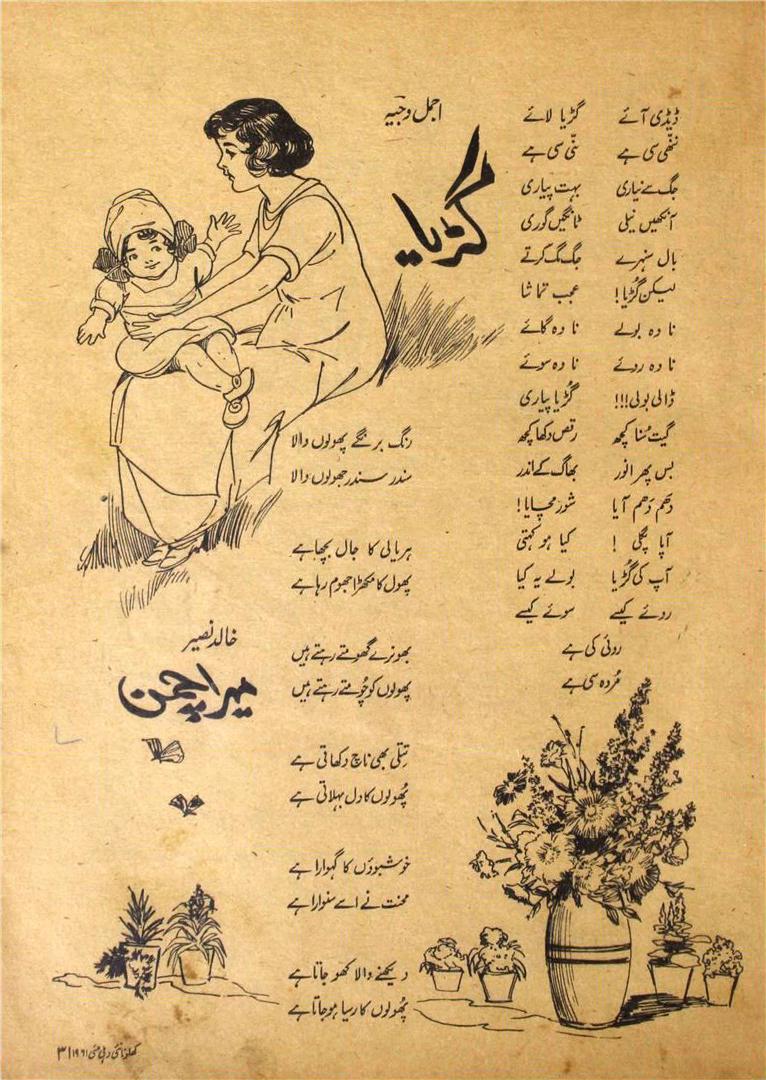 اجمل وجیہ
گڑیا
ڈیڈی آئے گڑیا لائے
ننّھی سی ہے بنّی سی ہے
جگ سے نیاری بہت پیاری
آنکھیں نیلی ٹانگیں گوری
بال سنہرے جگ مگ کرتے
لیکن گڑیا! عجب تماشا
نا وہ بولے نا وہ گائے
نا وہ روئے نا وہ سوئے
ڈالی بولی!!! گُڑیا پیاری
گیت سُنا کچھ رقص دکھا کچھ
بس پھر انور بھاگ کے اندر
دَھم دَھم آیا شور مچایا!
آپا پگلی ! کیا ہو کہتی
آپ کی گُڑیا بولے یہ کیا
روئے کیسے سوئے کیسے
روئی کی ہے
مُردہ سی ہے
خالد نصیر
میرا چمن
رنگ برنگے پھولوں والا
سندر سندر جھولوں والا
ہریالی کا جال بچھا ہے
پھول کا مکھڑا جھوم رہا ہے
بھونرے گھومتے رہتے ہیں
پھولوں کو چُومتے رہتے ہیں
تتلی بھی ناچ دکھاتی ہے
پُھولوں کا دل بہلاتی ہے
خوشبوؤں کا گہوارا ہے
محنت نے اسے سنوارا ہے
دیکھنے والا کھو جاتا ہے
پُھولوں کا رسیا ہو جاتا ہے
کھلونا نئی دہلی مئی ۱۹۶۱ ۳۱